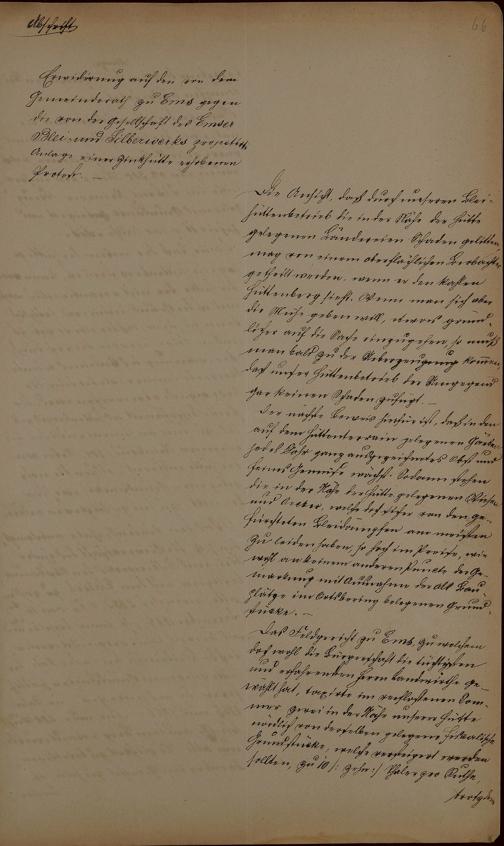 66
Abschrift
Erwiderung auf den von dem
Gemeinderath zu Ems gegen
die von der Gesellschaft des Emser
Blei- und Silberwerks projectirte
Anlage einer Zinkhütte erhobenen
Protest. —
Die Ansicht, daß durch unseren Blei-
hüttenbetrieb die in der Nähe der Hütte
gelegenen Ländereien Schaden gelitten,
mag von einem oberflächlichen Beobachter
getheilt werden, wenn er den kahlen
Hüttenberg sieht. Wenn man sich aber
die Mühe geben will, etwas gründ-
licher auf die Sache einzugehen, so muß
man bald zu der Ueberzeugung kommen,
daß unser Hüttenbetrieb der Umgegend
gar keinen Schaden zufügt. —
Der nächste Beweis hierfür ist, daß in den
auf dem Hüttenterrain gelegenen Gärten
jedes Jahr ganz ausgezeichnetes Obst und
feines Gemüse wächst. Sodann stehen
die in der Nähe der Hütte gelegenen Wiesen
und Aecker, welche doch sicher von den ge-
fürchteten Bleidämpfen am meisten
zu leiden haben, so hoch im Preise, wie
wohl an keinem anderen Punkte der Ge-
markung mit Ausnahme der als Bau-
plätze im Ortsbering belegenen Grund-
stücke. —
Das Feldgericht zu Ems, zu welchem
doch wohl die Bürgerschaft die tüchtigsten
und erfahrensten Herrn Landwirthe ge-
wählt hat, taxirte im verflossenen Som-
mer zwei in der Nähe unserer Hütte
nördlich von derselben gelegene fiskalische
Grundstücke, welche versteigert werden
sollten, zu 10 /: zehn :/ Thaler pro Ruthe,
trotzdem